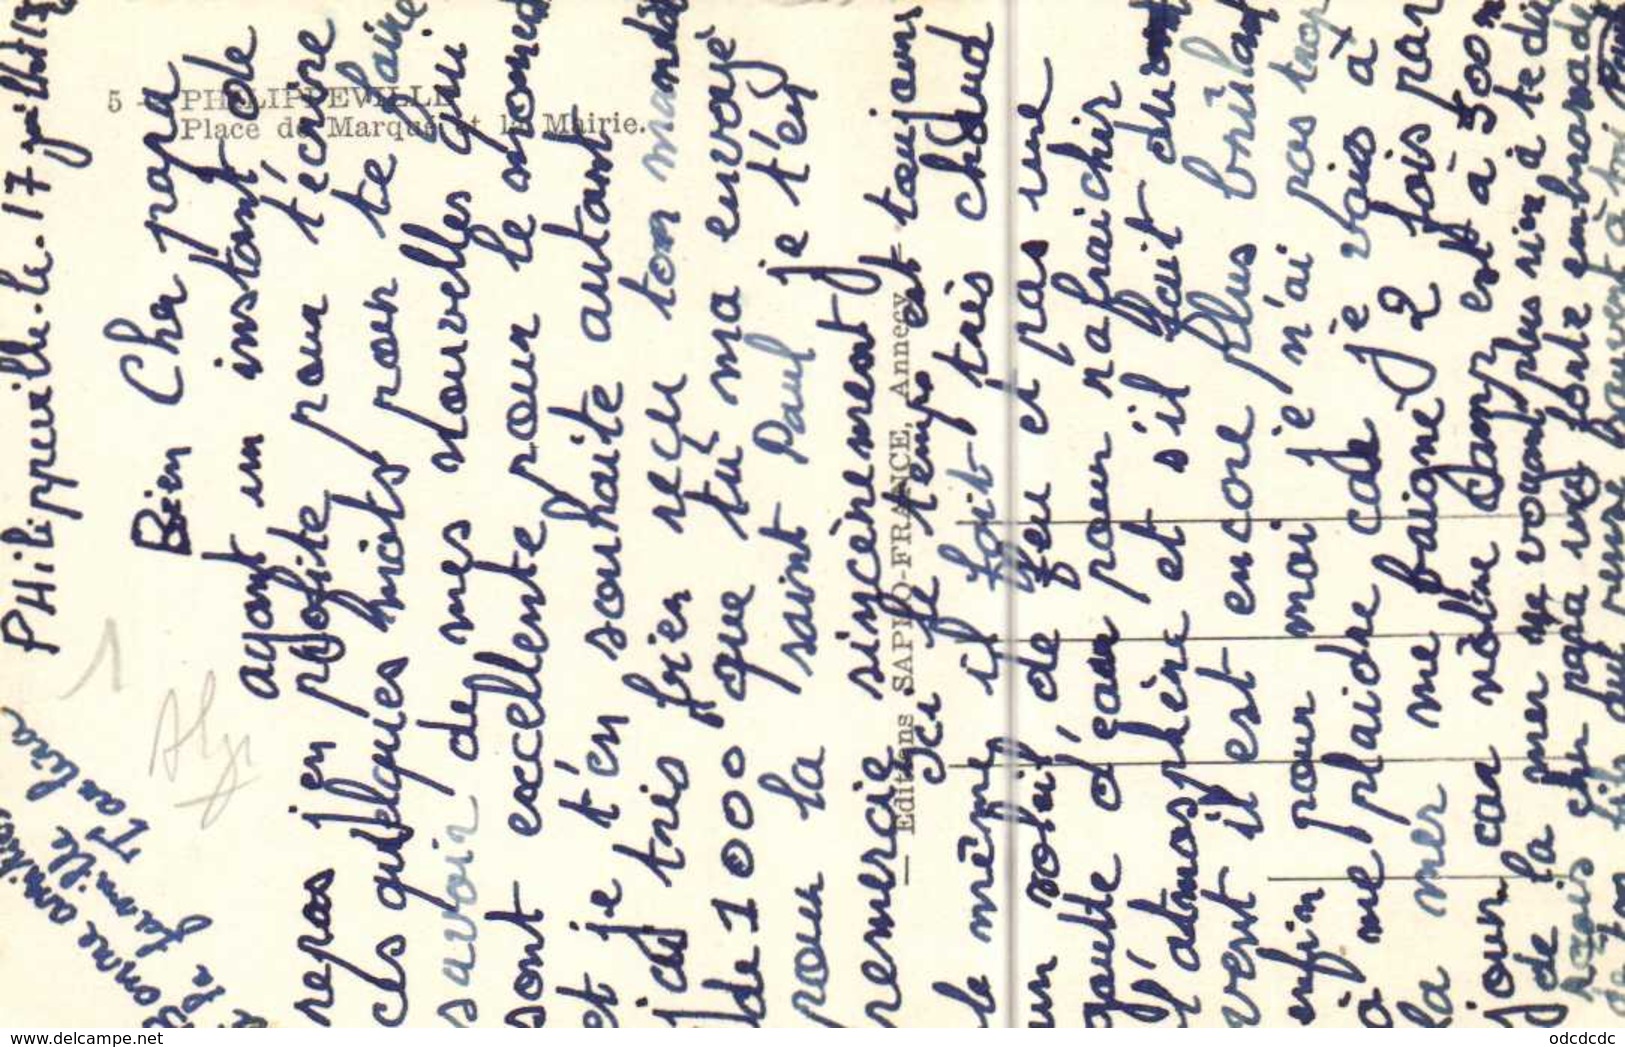 PHilippeville. le. 17 juillet
Cher papa
Bien
ayant un instant de
repos j'en profite pour t'écrire
ces quelques mots pour te faire
savoir de mes nouvelles qui
sont excellente pour le moment
et je t'en souhaite autant
j'ai très bien reçu ton mandat
de 1000 que tu ma envoyé
pour la saint Paul je t'en
remercie sincèrement
Ici le temps est toujours
le même il fait très chaud
un soleil de feu et pas une
goutte d'eau pour rafraichir
l'atmosphère et s'il fait du
vent il est encore plus brûlant
enfin pour moi je n'ai pas trop
à me plaidre car je vais à
la mer me baigné 2 fois par
jour car nôtre camp est à 500m
de la mer ne voyant plus rien à te dire
reçois cher papa une forte embrassade
de ton fils qui pense souvent à toi
Bonne amitiés
à la famille
5 - PHILIPPEVILLE
Place de Marqué et la Mairie.
— Editions SAPHO-FRANCE, Annecy —
Alg.
delcampe.net
odcdcdc